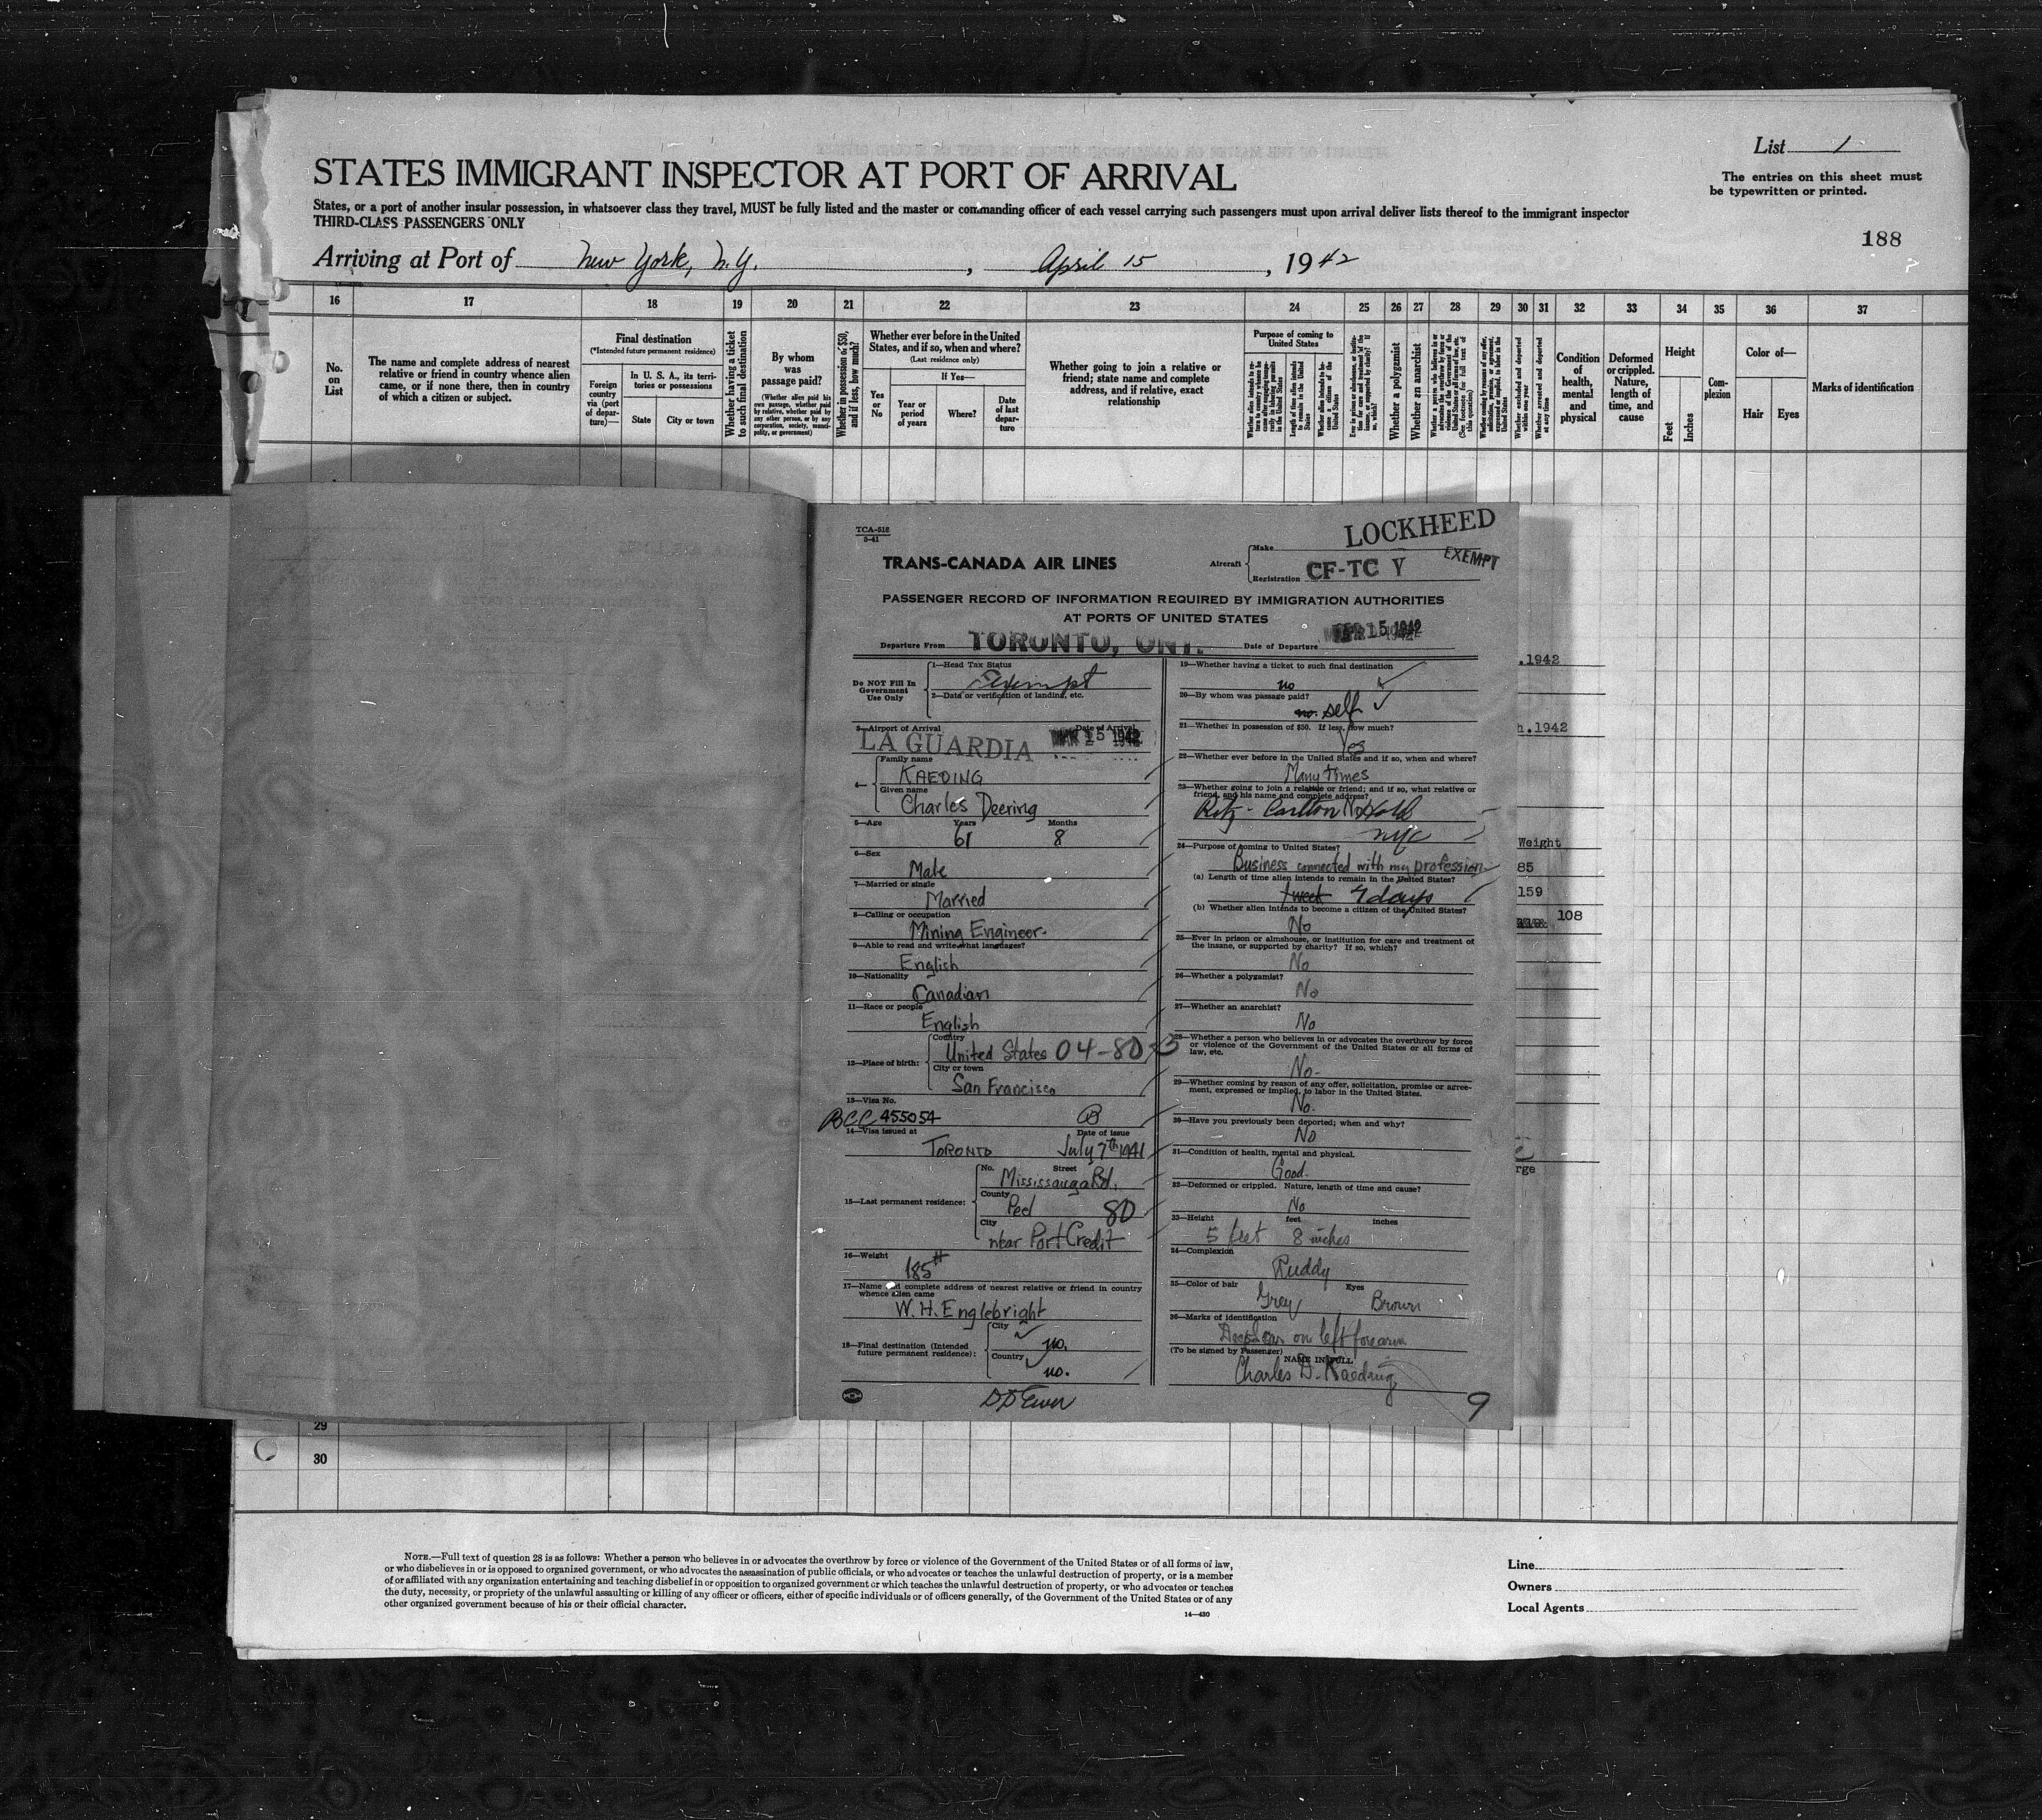 List 1
STATES IMMIGRANT INSPECTOR AT PORT OF ARRIVAL
The entries on this sheet must
be typewritten or printed.
States, or a port of another insular possession, in whatsoever class they travel, MUST be fully listed and the master or commanding officer of each vessel carrying such passengers must upon arrival deliver lists thereof to the immigrant inspector
THIRD-CLASS PASSENGERS ONLY
188
Arriving at Port of New York, N.Y. , April 15 , 1942
16 17 18 19 20 21 22 23 24 25 26 27 28 29 30 31 32 33 34 35 36 37
No. on List
The name and complete address of nearest
relative or friend in country whence alien
came, or if none there, then in country
of which a citizen or subject.
Final destination
(*Intended future permanent residence)
Foreign country via (port of departure)—
In U. S. A., its territories or possessions
State City or town
Whether having a ticket to such final destination
By whom was passage paid?
(Whether alien paid his own passage, whether paid by relative, whether paid by any other person, or by any corporation, society, municipality, or government)
Whether in possession of $50, and if less, how much?
Whether ever before in the United States, and if so, when and where?
(Last residence only)
Yes or No
If Yes—
Year or period of years
Where?
Date of last departure
Whether going to join a relative or
friend; state name and complete
address, and if relative, exact
relationship
Purpose of coming to United States
Length of time alien intends to remain in the United States
Whether a polygamist
Whether an anarchist
Condition of health, mental and physical
Deformed or crippled. Nature, length of time, and cause
Height
Feet Inches
Complexion
Color of—
Hair Eyes
Marks of identification
TCA-518
5-41
TRANS-CANADA AIR LINES
Aircraft
Make LOCKHEED
Registration CF-TC V
EXEMPT
PASSENGER RECORD OF INFORMATION REQUIRED BY IMMIGRATION AUTHORITIES
AT PORTS OF UNITED STATES
Departure From TORONTO, ONT. Date of Departure 15 1942
Do NOT Fill In
Government
Use Only
1—Head Tax Status
Exempt
2—Date or verification of landing, etc.
3—Airport of Arrival Date of Arrival
LA GUARDIA 15 1942
4— Family name
KAEDING
Given name
Charles Deering
5—Age Years Months
61 8
6—Sex
Male
7—Married or single
Married
8—Calling or occupation
Mining Engineer.
9—Able to read and write what languages?
English
10—Nationality
Canadian
11—Race or people
English
12—Place of birth: Country
United States 04-80-3
City or town
San Francisco
13—Visa No.
BCC 455054 B
14—Visa issued at Date of issue
TORONTO July 7th 1941
15—Last permanent residence: No. Street
Mississauga Rd.
County
Peel 80
City
near Port Credit
16—Weight
185#
17—Name and complete address of nearest relative or friend in country
whence alien came
W. H. Englebright
18—Final destination (Intended
future permanent residence):
City
no.
Country
no.
19—Whether having a ticket to such final destination
no
20—By whom was passage paid?
no. self
21—Whether in possession of $50. If less, how much?
Yes
22—Whether ever before in the United States and if so, when and where?
Many times
23—Whether going to join a relative or friend; and if so, what relative or
friend, and his name and complete address?
Ritz-Carlton Hotel
NYC
24—Purpose of coming to United States?
Business connected with my profession
(a) Length of time alien intends to remain in the United States?
1 week 4 days
(b) Whether alien intends to become a citizen of the United States?
No
25—Ever in prison or almshouse, or institution for care and treatment of
the insane, or supported by charity? If so, which?
No
26—Whether a polygamist?
No
27—Whether an anarchist?
No
28—Whether a person who believes in or advocates the overthrow by force
or violence of the Government of the United States or all forms of
law, etc.
No.
29—Whether coming by reason of any offer, solicitation, promise or agree-
ment, expressed or implied, to labor in the United States.
No.
30—Have you previously been deported; when and why?
No
31—Condition of health, mental and physical.
Good.
32—Deformed or crippled. Nature, length of time and cause?
No
33—Height feet inches
5 feet 8 inches
34—Complexion
Ruddy
35—Color of hair Eyes
Grey Brown
36—Marks of identification
on left forearm
(To be signed by Passenger) NAME IN FULL
Charles D. Kaeding
9
.1942
h.1942
Weight
85
159
108
rge
29
30
NOTE.—Full text of question 28 is as follows: Whether a person who believes in or advocates the overthrow by force or violence of the Government of the United States or of all forms of law,
or who disbelieves in or is opposed to organized government, or who advocates the assassination of public officials, or who advocates or teaches the unlawful destruction of property, or is a member
of or affiliated with any organization entertaining and teaching disbelief in or opposition to organized government or which teaches the unlawful destruction of property, or who advocates or teaches
the duty, necessity, or propriety of the unlawful assaulting or killing of any officer or officers, either of specific individuals or of officers generally, of the Government of the United States or of any
other organized government because of his or their official character.
14—430
Line
Owners
Local Agents